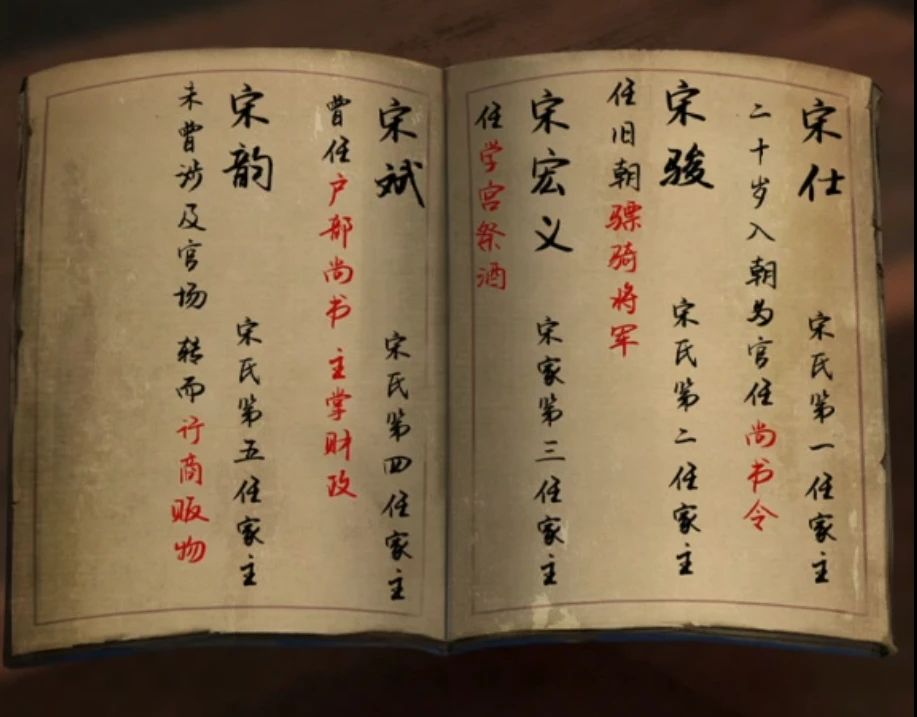 宋仕
宋氏第一任家主
二十岁入朝为官任尚书令
宋骏
宋氏第二任家主
任旧朝骠骑将军
宋宏义
宋家第三任家主
任学宫祭酒
宋斌
宋氏第四任家主
曾任户部尚书 主掌财政
宋韵
宋氏第五任家主
未曾涉及官场 转而行商贩物